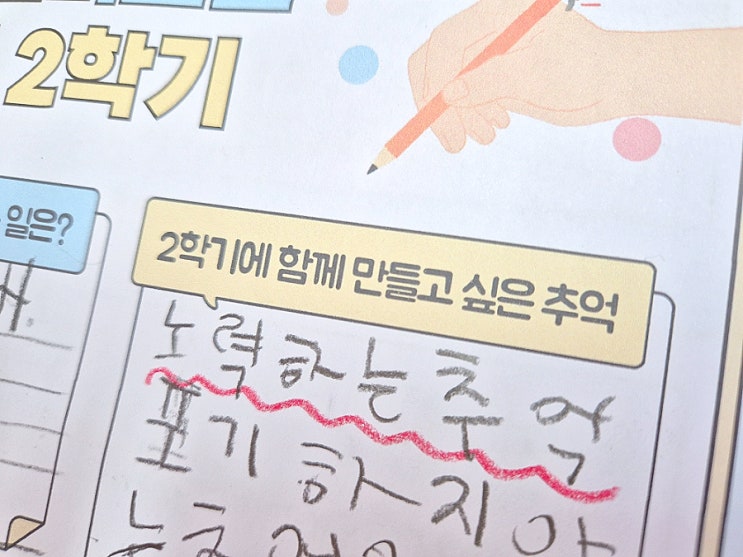 2학기
일은?
2학기에 함께 만들고 싶은 추억
노력하는 추억
포기하지 아
는 추억